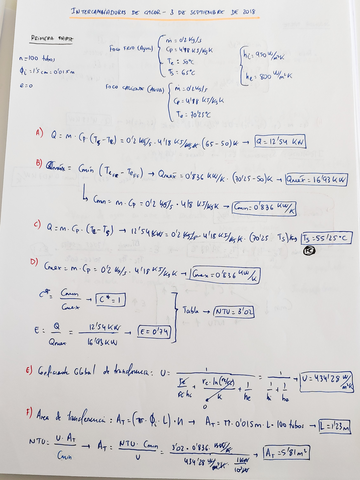 INTERCAMBIADORES DE CALOR - 3 DE SEPTIEMBRE DE 2018
PRIMERA PARTE
n=100 tubos
ϕi=1'5cm=0'015m
e=0
Foco frio (Agua) { m=0'2 KG/s
Cp=4'18 KJ/KgK
Te=50°C
Ts=65°C
Foco caliente (Agua) { m=0'2 KG/s
Cp=4'18 KJ/KgK
Te=70'25°C
{ hi=950 W/m²K
he=800 W/m²K
A) Q=m·Cp·(Ts-Te)=0'2 KG/s·4'18 KJ/KgK·(65-50)K → Q=12'54 KW
B) Qmáx=Cmin·(Tece-Tefe) → Qmáx=0'836 KW/K·(70'25-50)K → Qmáx=16'93 KW
↳ Cmin=m·Cp=0'2 KG/s·4'18 KJ/KgK → Cmin=0'836 KW/K
C) Q=m·Cp·(Te-Ts) → 12'54KW=0'2 KG/s·4'18 KJ/KgK·(70'25-Ts)K → Ts=55'25°C
D) Cmax=m·Cp=0'2 KG/s·4'18 KJ/KgK → Cmax=0'836 KW/K
C*=Cmin/Cmax → C*=1
Tabla → NTU=3'02
E=Q/Qmax=12'54KW/16'93KW → E=0'74
E) Coeficiente Global de transferencia: U=1/(re/(ri·hi)+re·ln(re/ri)/K+1/he)=1/(1/hi+1/he) → U=434'28 W/m²K
F) Area de transferencia: AT=(π·ϕi·L)·N → AT=π·0'015m·L·100 tubos → L=1'23m
NTU=U·AT/Cmin → AT=NTU·Cmin/U=3'02·0'836 KW/K/434'28 W/m²K·1KW/10³W → AT=5'81m²